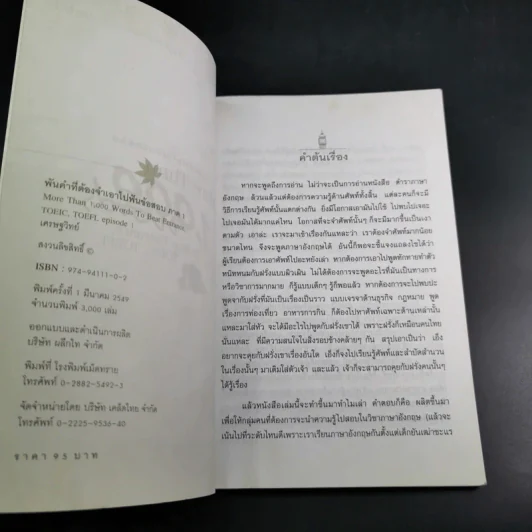 พันคำที่ต้องจำเอาไปฟันข้อสอบ ภาค 1
More Than 1,000 Words To Beat Entrance
TOEIC, TOEFL episode 1
เศรษฐวิทย์
สงวนลิขสิทธิ์ ©
ISBN : 974-94111-0-2
พิมพ์ครั้งที่ 1 มีนาคม 2549
จำนวนพิมพ์ 3,000 เล่ม
ออกแบบและดำเนินการผลิต
บริษัท ผลึกไท จำกัด
พิมพ์ที่ โรงพิมพ์เม็ดทราย
โทรศัพท์ 0-2882-5492-3
จัดจำหน่ายโดย บริษัท เคล็ดไทย จำกัด
โทรศัพท์ 0-2225-9536-40
ราคา 95 บาท
คำต้นเรื่อง
หากจะพูดถึงการอ่าน ไม่ว่าจะเป็นการอ่านหนังสือ ตำราภาษา
อังกฤษ ล้วนแล้วแต่ต้องการความรู้ด้านศัพท์ทั้งสิ้น แต่ละคนก็จะมี
วิธีการเรียนรู้ศัพท์นั้นแตกต่างกัน ยิ่งมีโอกาสเอามันไปใช้ ไปพบไปเจอะ
ไปเจอมันได้มากแค่ไหน โอกาสที่จะจำศัพท์นั้นๆ ก็จะมีมากขึ้นเป็นเงา
ตามตัว เอาล่ะ เราจะมาเข้าเรื่องกันแหละว่า เราต้องจำศัพท์มากน้อย
ขนาดไหน จึงจะพูดภาษาอังกฤษได้ อันนี้ก็พอจะชี้แจงแถลงไขได้ว่า
ผู้เรียนต้องการเอาศัพท์ไปอะหยังเล่า หากต้องการเอาไปพูดทักทายทำตัว
หนิทหนมกับฝรั่งแบบผิวเผิน ไม่ได้ต้องการจะพูดอะไรที่มันเป็นทางการ
หรือวิชาการมากมาย ก็รู้แบบเด็กๆ รู้ก็พอแล้ว หากต้องการจะไปพบปะ
พูดจากับฝรั่งที่มันเป็นเรื่องเป็นราว แบบเจรจาด้านธุรกิจ กฎหมาย พูด
เรื่องการท่องเที่ยว อาหารการกิน ก็ต้องไปหาศัพท์เฉพาะด้านเหล่านั้น
แหละมาใส่หัว จะได้มีอะไรไปพูดกับฝรั่งเขาได้ เพราะฝรั่งก็เหมือนคนไทย
นั่นแหละ ที่มีความสนใจในสิ่งรอบข้างคล้ายๆ กัน สรุปเอาเป็นว่า เอ็ง
อยากจะคุยกับฝรั่งเรื่องอันใด เอ็งก็จงไปเรียนรู้ศัพท์และสำบัดสำนวน
ในเรื่องนั้นๆ มาเติมใส่ตัวเจ้า และแล้ว เจ้าก็จะสามารถคุยกับฝรั่งคนนั้นๆ
ได้รู้เรื่อง
แล้วหนังสือเล่มนี้จะทำขึ้นมาทำไมเล่า คำตอบก็คือ ผลิตขึ้นมา
เพื่อให้กลุ่มคนที่ต้องการจะนำความรู้ไปสอบในวิชาภาษาอังกฤษ (แล้วจะ
เน้นไปที่ระดับไหนดีเพราะเราเรียนภาษาอังกฤษกันตั้งแต่เด็กยันเฒ่าชะแร